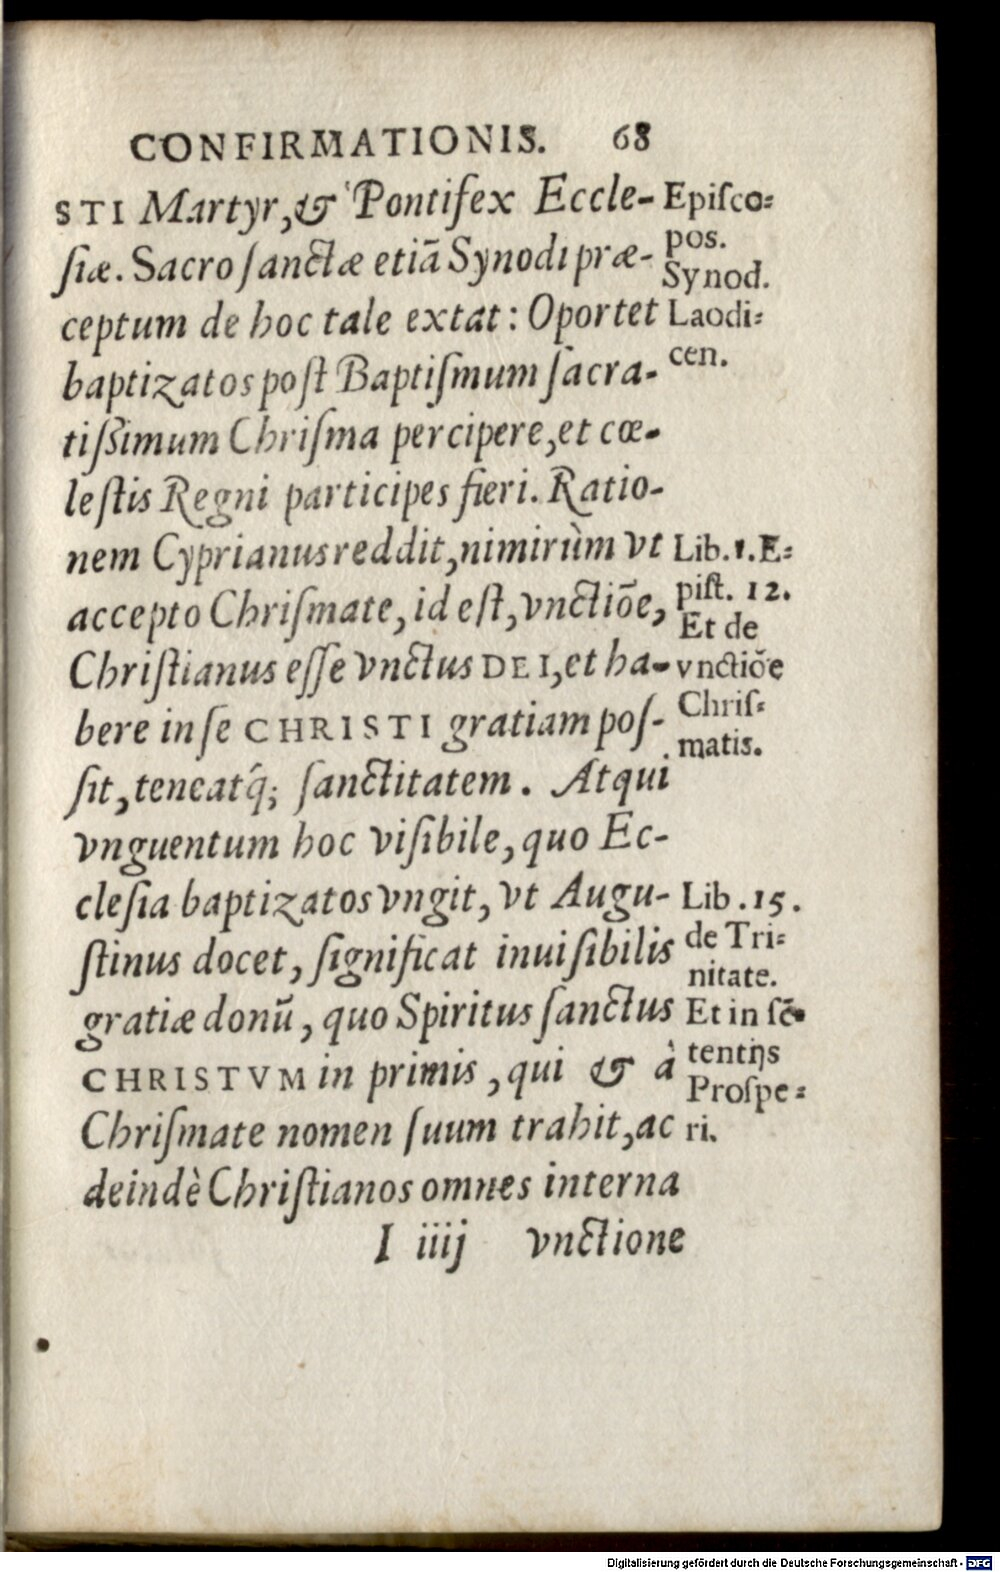 CONFIRMATIONIS. 68
STI Martyr, & Pontifex Eccle-
ſiæ. Sacroſanctæ etiã Synodi præ-
ceptum de hoc tale extat: Oportet
baptizatos poſt Baptiſmum ſacra-
tiſsimum Chriſma percipere, et cœ-
leſtis Regni participes fieri. Ratio-
nem Cyprianus reddit, nimirùm vt
accepto Chriſmate, id eſt, vnctiõe,
Chriſtianus eſſe vnctus DEI, et ha-
bere in ſe CHRISTI gratiam poſ-
ſit, teneatq́; ſanctitatem. Atqui
vnguentum hoc viſibile, quo Ec-
cleſia baptizatos vngit, vt Augu-
ſtinus docet, ſignificat inuiſibilis
gratiæ donũ, quo Spiritus ſanctus
CHRISTVM in primis, qui & à
Chriſmate nomen ſuum trahit, ac
deindè Chriſtianos omnes interna
I iiij vnctione
Epiſco-
pos.
Synod.
Laodi-
cen.
Lib. 1. E-
piſt. 12.
Et de
vnctiõe
Chriſ-
matis.
Lib. 15.
de Tri-
nitate.
Et in ſẽ-
tentijs
Proſpe-
ri.
Digitalisierung gefördert durch die Deutsche Forschungsgemeinschaft - DFG